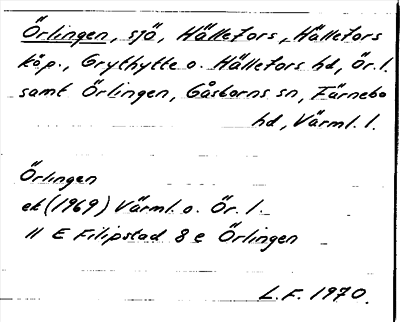 Örlingen, sjö, Hällefors, Hällefors
köp., Grythytte o. Hällefors hd, Ör. l.
samt Örlingen, Gåsborns sn, Färnebo
hd, Värml. l.
Örlingen
ek (1969) Värml. o. Ör. l.
11 E Filipstad 8 e Örlingen
L.F. 1970.